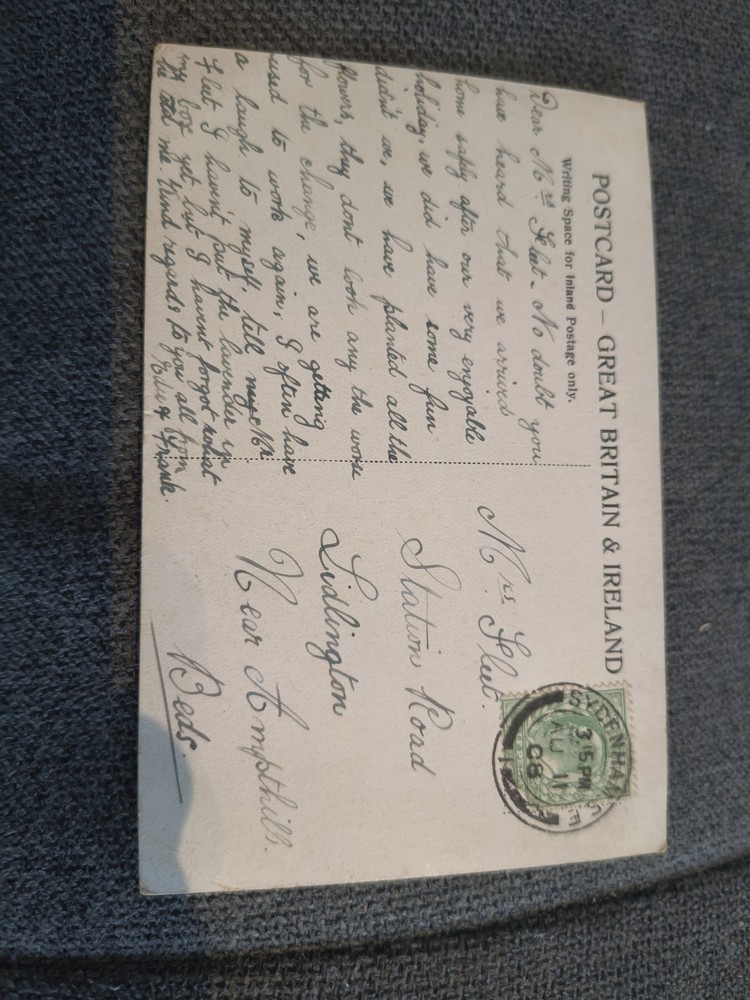 POSTCARD – GREAT BRITAIN & IRELAND
Writing Space for Inland Postage only.
Dear Mrs Fleet. No doubt you
have heard that we arrived
home safely after our very enjoyable
holiday, we did have some fun
didn't we, we have planted all the
flowers, they dont look any the worse
for the change, we are getting
used to work again, I often have
a laugh to myself, till Mr
Fleet I havn't put the lavender in
my box yet but I havent forgot what
he told me. Kind regards to you all from
& Frank.
Mrs Fleet.
Station Road
Lidlington
Near Ampthill.
Beds.
SYDENHAM S.E
3.15 PM
AU 11
08